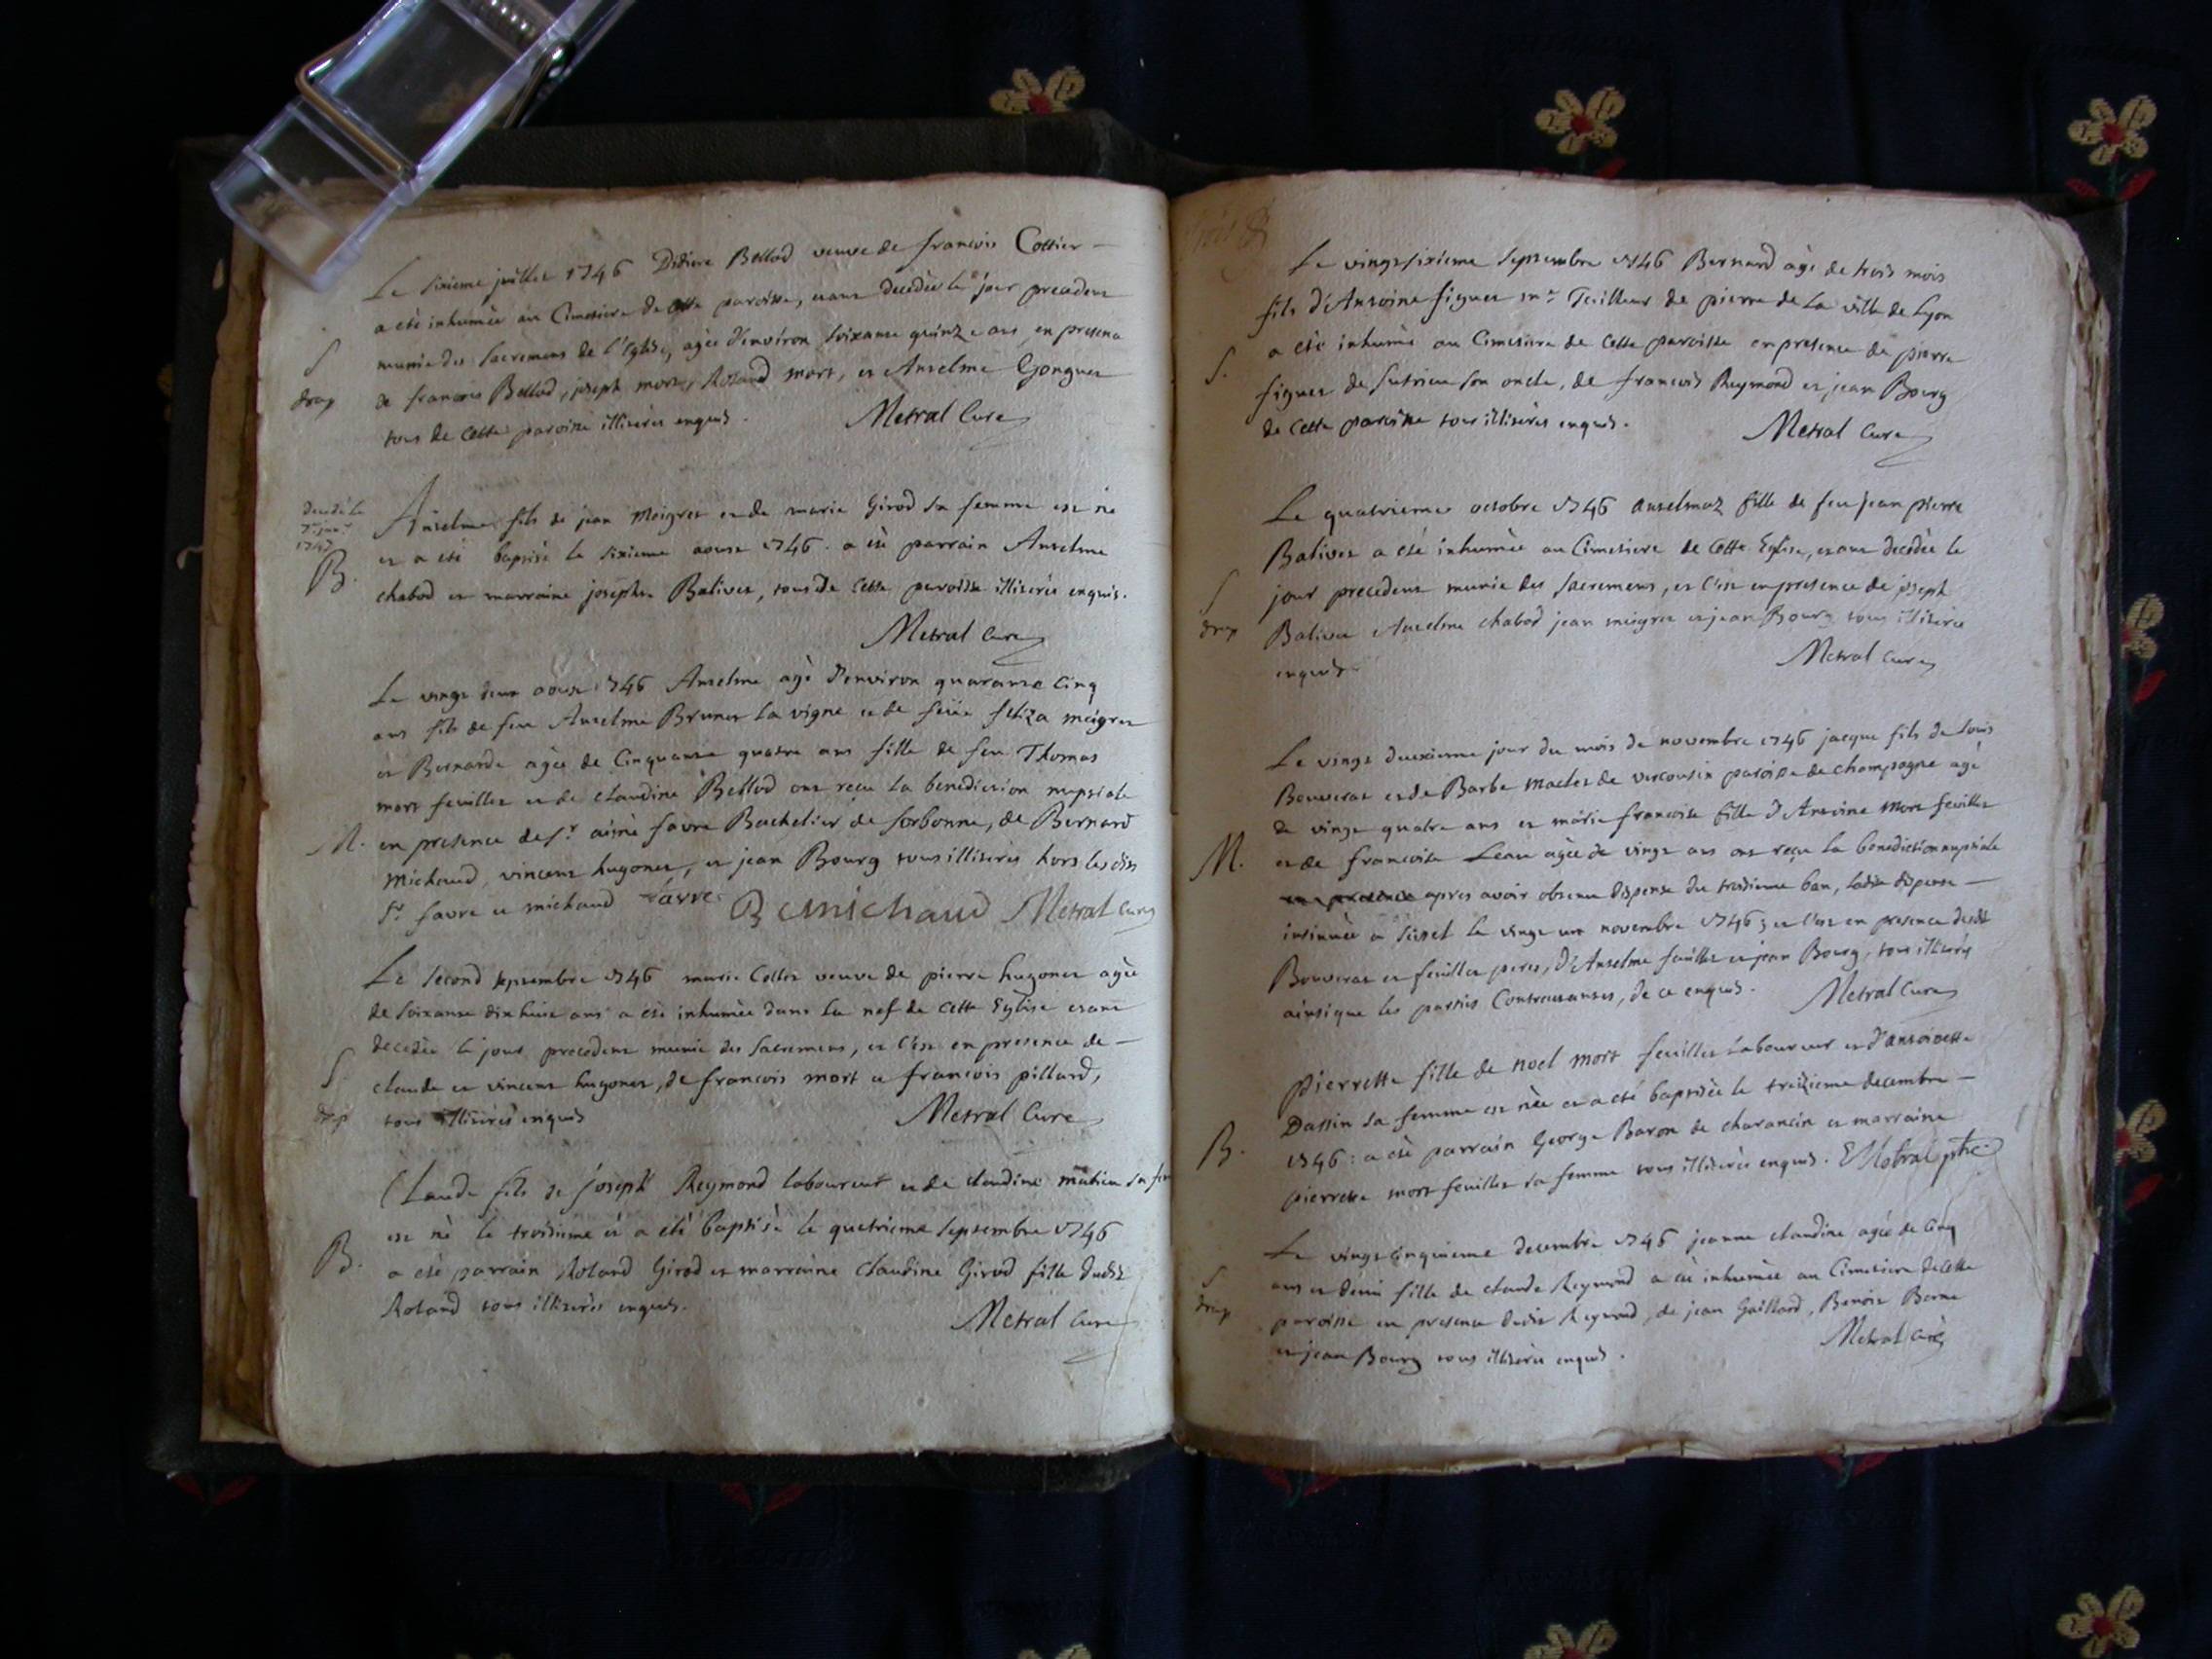 Le sixieme juillet 1746 Didiere Bellod veuve de francois Cottier
a eté inhumèe au Cimetiere de cette paroisse, etant decedèe le jour precedent
S munie des Sacremens de l'Eglise, agèe d'environ soixante quinze ans, en presence
drap de francois Bellod, joseph mort, Roland mort, et Anselme Gonguet
tous de cette paroisse illiterès enquis. Metral Curé
decedé le
7e janer
1747
Anselme fils de jean Meigret et de marie Girod sa femme est né
B. et a eté baptisé le sixieme aoust 1746. a etè parrain Anselme
chabod et marraine josephte Balivet, tous de cette paroisse illiterès enquis.
Metral Curé
Le vingt deux aoust 1746 Anselme agè d'environ quarante cinq
ans fils de feu Anselme Brunet la vigne et de feüe feliza meigret
et Bernarde agèe de Cinquante quatre ans fille de feu Thomas
mort feuillet et de claudine Bellod ont reçu la benediction nuptiale
M. en presence de Sr. aimè favre Bachelier de Sorbonne, de Bernard
Michaud, vincent hugonet, et jean Bourg tous illiterès hors lesdits
Sr favre et michaud favre B Michaud Metral Curé
Le second septembre 1746 marie Collet veuve de pierre hugonet agèe
de soixante dix huit ans a etè inhumèe dans la nef de cette Eglise etant
S decedèe le jour precedent munie des Sacremens, et c'est en presence de
claude et vincent hugonet, de francois mort et francois pillard,
drap tous illiterès enquis Metral Curé
Claude fils de Joseph Reymond laboureur et de claudine mathieu sa fem
est nè le troisieme et a eté baptisé le quatrieme septembre 1746
B. a eté parrain Roland Girod et marraine claudine Girod fille dudit
Roland tous illiterès enquis.
Metral Curé
Le vingt sixieme septembre 1746 Bernard âgé de trois mois
fils d'Antoine figuet me Tailleur de pierre de la ville de Lyon
S. a etè inhumé au Cimetiere de cette paroisse en presence de pierre
figuet de Sutrieu son oncle, de francois Reymond et jean Bourg
de cette paroisse tous illiterès enquis. Metral Curé
Le quatrieme octobre 1746 anselmaz fille de feu jean pierre
Balivet a eté inhumèe au Cimetiere de cette Eglise, etant decedèe le
S jour precedent munie des Sacremens, et c'est en presence de joseph
drap Balivet Anselme chabod jean meigret et jean Bourg tous illiterès
enquis Metral Curé
Le vingt deuxieme jour du mois de novembre 1746 jacque fils de Loüis
Bouverat et de Barbe Maclet de vercousin paroisse de champagne agé
de vingt quatre ans et marie francoise fille d'Antoine mort feuillet
M. et de francoise Leau agèe de vingt ans ont reçu la benediction nuptiale
en presence apres avoir obtenu dispense du troisieme ban, ladite dispense
insinuèe a Seissel le vingt un novembre 1746; et c'est en presence desdits
Bouverat et feuillet peres, d'Anselme feuillet et jean Bourg, tous illiterès
ainsi que les parties Contractantes, de ce enquis. Metral Curé
Pierrette fille de noel mort feuillet laboureur et d'antoinette
Dassin sa femme est nèe et a eté baptisèe le treizieme decembre
B. 1746: a etè parrain George Baron de charancin et marraine
pierrette mort feuillet sa femme tous illiterès enquis. E Metral ptre
Le vingt cinquieme decembre 1746 jeanne claudine agèe de Cinq
S ans et demi fille de claude Reymond a eté inhumèe au Cimetiere de cette
drap paroisse en presence dudit Reymond, de jean Gaillard, Benoit Berne
et jean Bourg tous illiterès enquis. Metral Curé